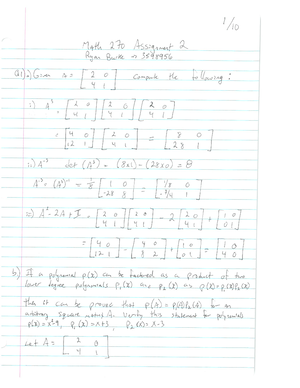 1/10
Math 270 Assignment 2
Ryan 3598956
Q1) a) Given A = [2 0; 4 1] compute the following:
i) A³ = [2 0; 4 1] [2 0; 4 1] [2 0; 4 1]
= [4 0; 12 1] [2 0; 4 1] = [8 0; 28 1]
ii) A⁻³ det (A³) = (8x1) - (28x0) = 8
A⁻³ = (A³)⁻¹ = 1/8 [1 0; -28 8] = [1/8 0; 1]
iii) A² - 2A + I = [2 0; 4 1] [2 0; 4 1] - 2 [2 0; 4 1] + [1 0; 0 1]
= [4 0; 12 1] - [4 0; 8 2] + [1 0; 0 1] = [1 0; 4 0]
b) If a polynomial p(x) can be factored as a product of two
lower degree polynomials p₁(x) and p₂(x) as p(x) = p₁(x)p₂(x)
then it can be proved that p(A) = p₁(A)p₂(A) for an
arbitrary square matrix A. Verify this statement for polynomials
p(x) = x²-9, p₁(x) = x+3, p₂(x) = x-3
Let A = [2 0; 4 1]